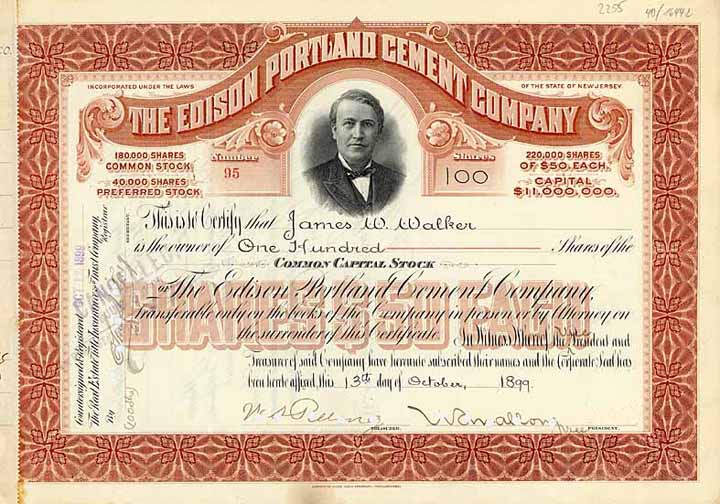 2255 40/16442
THE EDISON PORTLAND CEMENT COMPANY
INCORPORATED UNDER THE LAWS
OF THE STATE OF NEW JERSEY.
180,000 SHARES
COMMON STOCK
40,000 SHARES
PREFERRED STOCK
Number
95
Shares
100
220,000 SHARES
OF $50. EACH.
CAPITAL
$11,000,000.
This is to Certify that James W. Walker
is the owner of One Hundred Shares of the
COMMON CAPITAL STOCK
of The Edison Portland Cement Company,
SHARES $50 EACH
Transferable only on the books of the Company in person or by Attorney on
the surrender of this Certificate. In Witness Whereof, the Vice President and
Treasurer of said Company have hereunto subscribed their names and the Corporate Seal has
been hereto affixed, this 13th day of October, 1899.
TREASURER.
Vice PRESIDENT.
Countersigned & Registered 1899
The Real Estate Title Insurance & Trust Company,
Registrar
By
SECRETARY.
CANCELLED